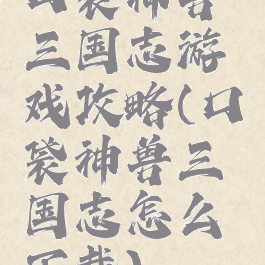 口袋神兽
三国志游
戏攻略(口
袋神兽三
国志怎么
下载)